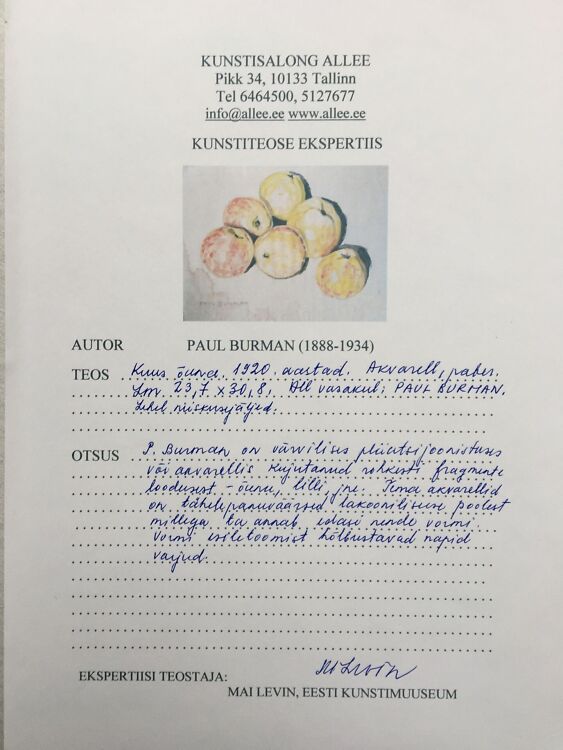 KUNSTISALONG ALLEE
Pikk 34, 10133 Tallinn
Tel 6464500, 5127677
info@allee.ee www.allee.ee
KUNSTITEOSE EKSPERTIIS
PAUL BURMAN
AUTOR PAUL BURMAN (1888-1934)
TEOS Kuus õuna. 1920. aastad. Akvarell, paber.
Lm. 23,7 x 30,8. All vasakul: PAUL BURMAN.
Lehel niiskusjäljed.
OTSUS P. Burman on värvilises pliiatsijoonistuses
või akvarellis kujutanud rohkesti fragmente
loodusest - õunu, lilli jne. Tema akvarellid
on tähelepanuväärsed lakoonilisuse poolest
millega ta annab edasi nende vormi.
Vormi esiletoomist hõlbustavad napid
varjud.
EKSPERTIISI TEOSTAJA: M Levin
MAI LEVIN, EESTI KUNSTIMUUSEUM